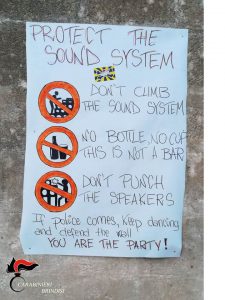 PROTECT THE
SOUND SYSTEM
DON'T CLIMB
THE SOUND SYSTEM
NO BOTTLE, NO CUP
THIS IS NOT A BAR
DON'T PUNCH
THE SPEAKERS
If police comes, keep dancing
and defend the wall
YOU ARE THE PARTY!
CARABINIERI
BRINDISI